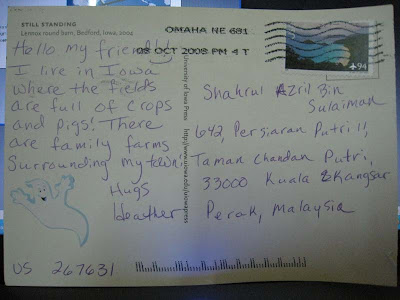 STILL STANDING
Lennox round barn, Bedford, Iowa, 2004
OMAHA NE 681
08 OCT 2008 PM 4 T
94
Hello my friend
I live in Iowa
where the fields
are full of crops
and pigs! There
are family farms
surrounding my town!
Hugs
Heather
US 267631
University of Iowa Press
http://www.uiowa.edu/uiowapress
Shahrul Azril Bin
Sulaiman
642, Persiaran Putri 11,
Taman Chandan Putri,
33000 Kuala Kangsar
Perak, Malaysia